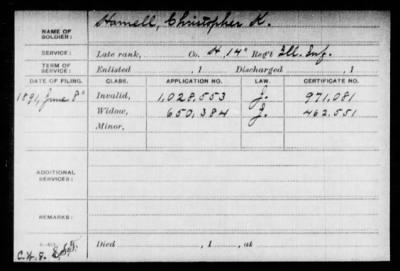 NAME OF SOLDIER: Hamell, Christopher K.
SERVICE: Late rank, Co. H. 14" Reg't Ill. Inf.
TERM OF SERVICE: Enlisted , 1 Discharged , 1
DATE OF FILING. CLASS. APPLICATION NO. LAW. CERTIFICATE NO.
1891, June 8" Invalid, 1,028,553 J. 971,081
Widow, 650,384 J. 462,551
Minor,
ADDITIONAL SERVICES:
REMARKS:
Died , 1 , at